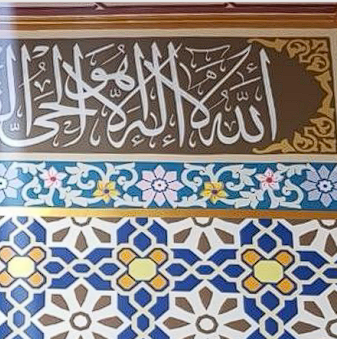 الله لا إله إلا هو الحي